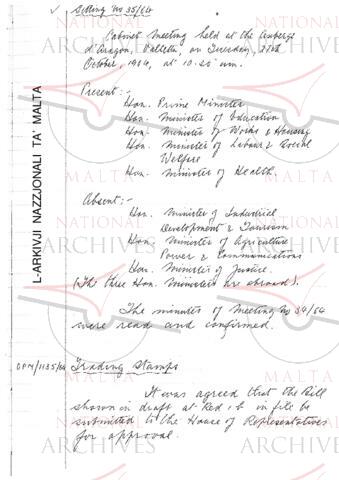 ✓ Sitting No 35/64
Cabinet Meeting held at the Auberge
d'Aragon, Valletta, on Tuesday, 27th
October, 1964, at 10.20 am.
Present:-
Hon. Prime Minister
Hon. Minister of Education
Hon. Minister of Works & Housing
Hon. Minister of Labour & Social
Welfare
Hon. Minister of Health.
Absent:-
Hon. Minister of Industrial
Development & Tourism
Hon. Minister of Agriculture
Power & Communications
Hon. Minister of Justice.
(The three Hon. Ministers are abroad).
The minutes of Meeting No 34/64
were read and confirmed.
OPM/1135/64 Trading Stamps
It was agreed that the Bill
shown in draft at Red in file be
submitted to the House of Representatives
for approval.
L-ARKIVJI NAZZJONALI TA' MALTA
NATIONAL
ARCHIVES
MALTA